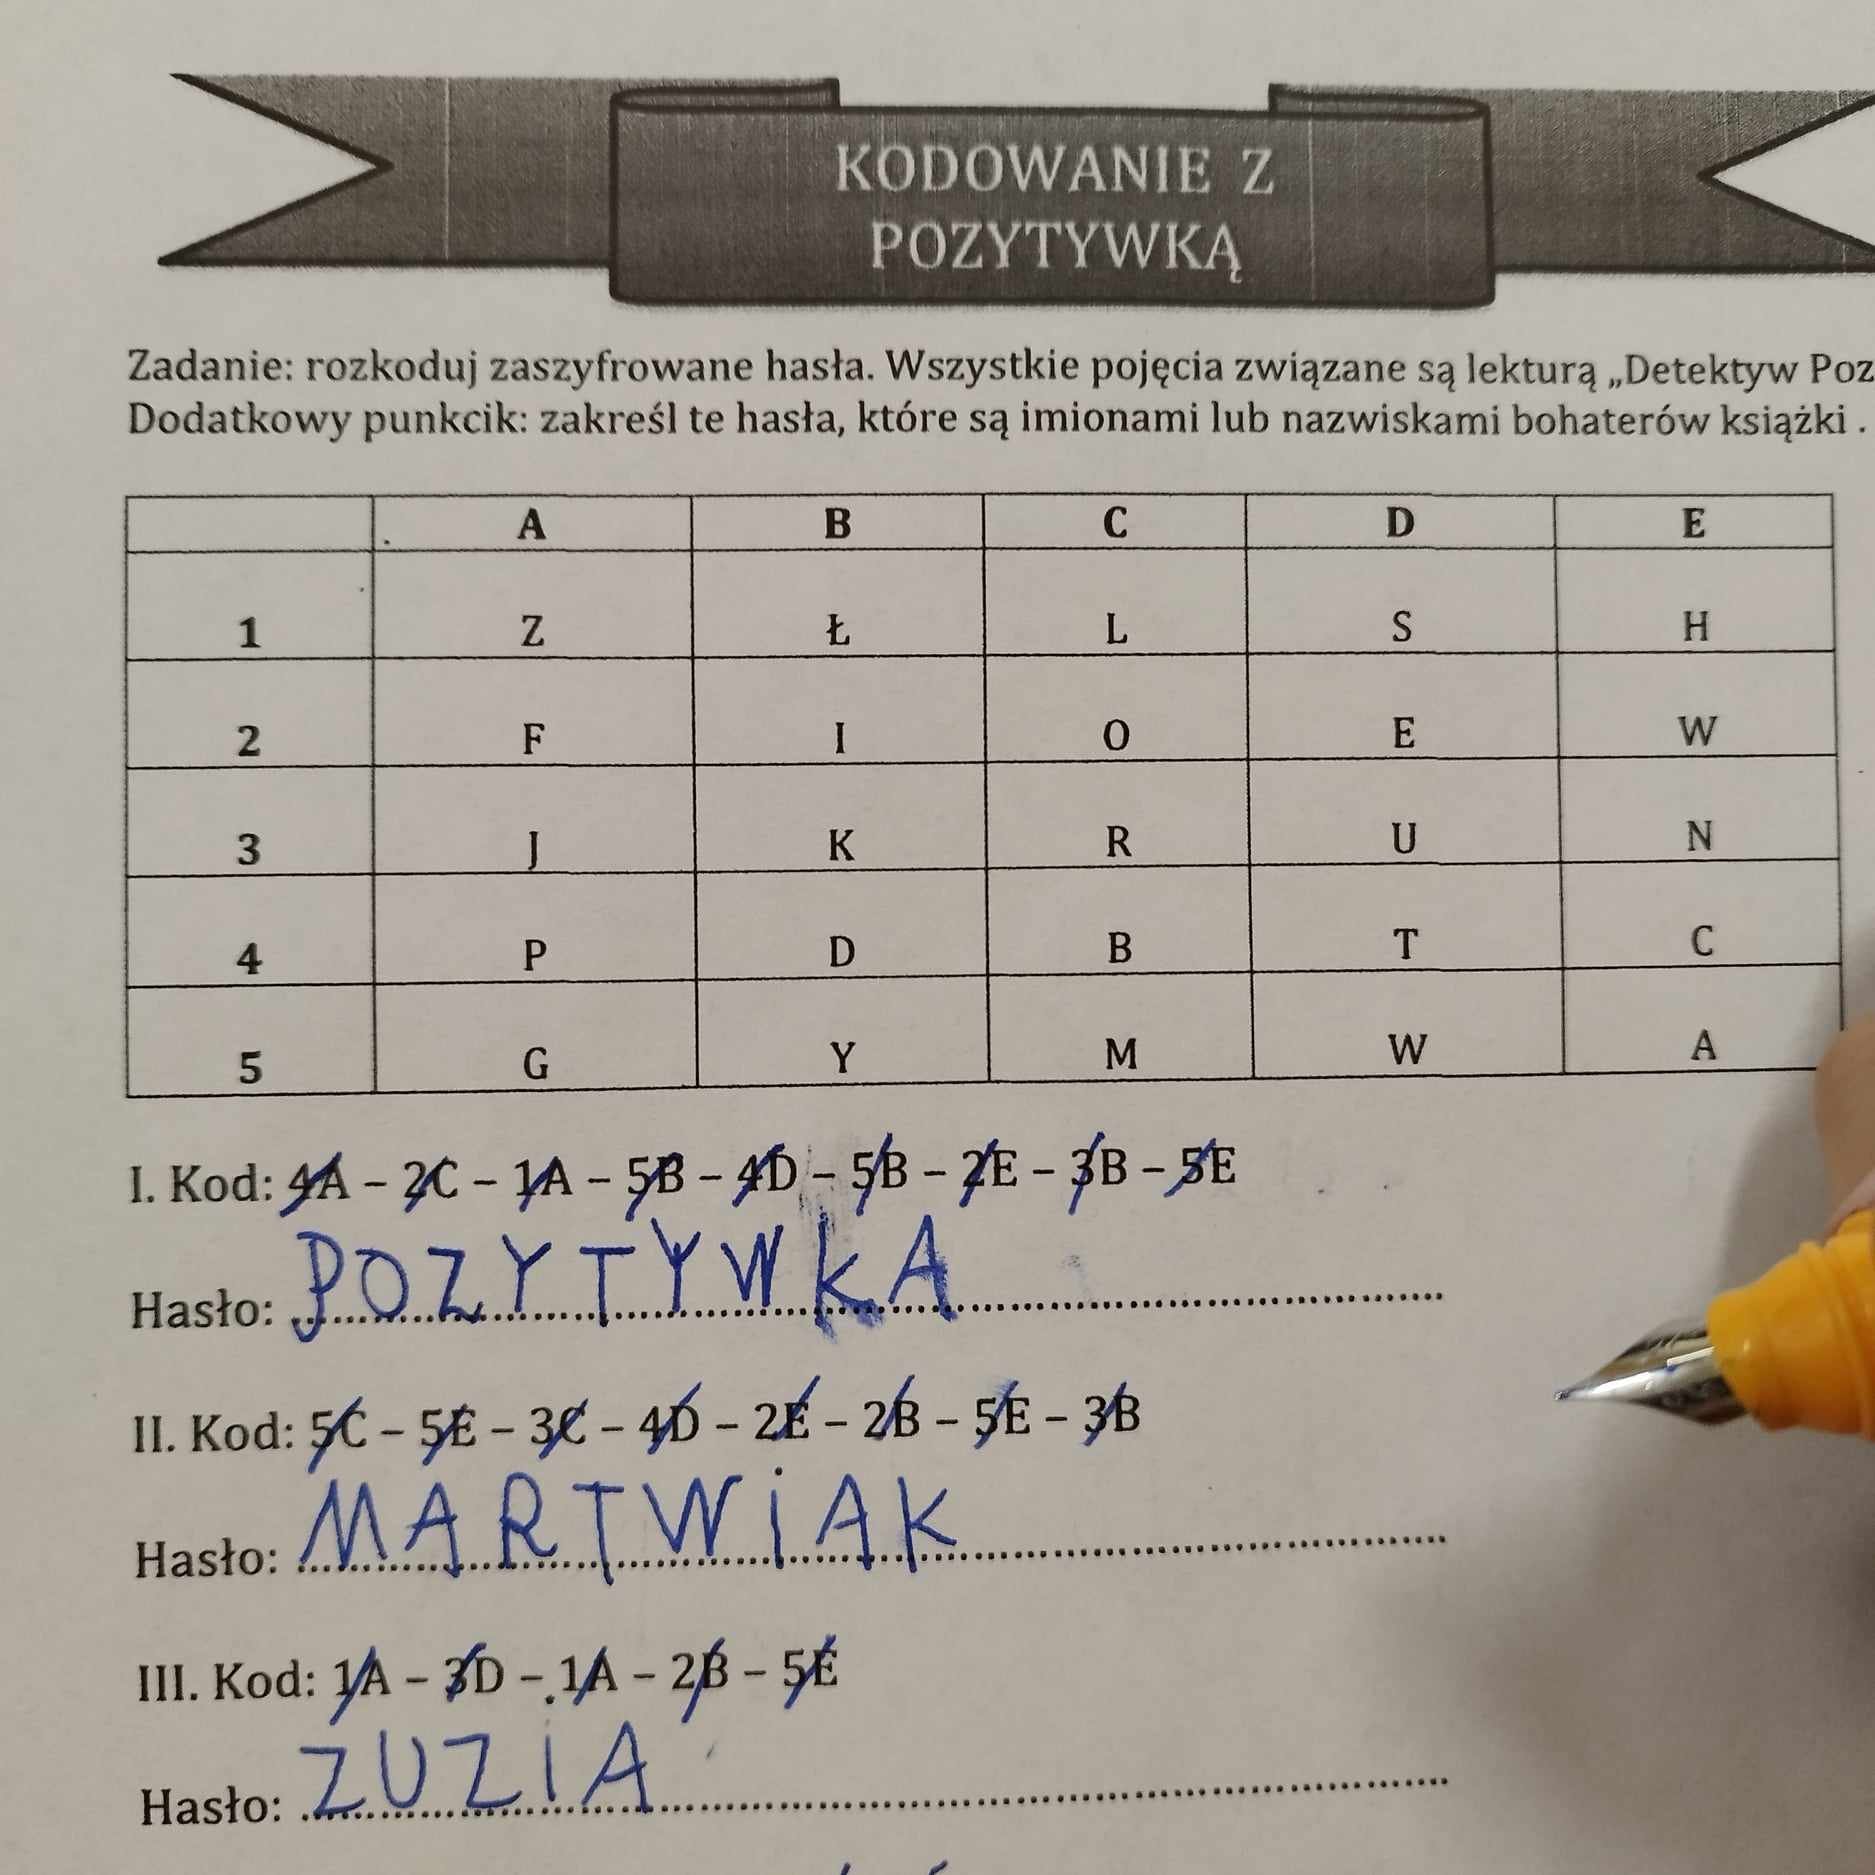 KODOWANIE Z
POZYTYWKĄ
Zadanie: rozkoduj zaszyfrowane hasła. Wszystkie pojęcia związane są lekturą „Detektyw Poz
Dodatkowy punkcik: zakreśl te hasła, które są imionami lub nazwiskami bohaterów książki .
A B C D E
1 Z Ł L S H
2 F I O E W
3 J K R U N
4 P D B T C
5 G Y M W A
I. Kod: 4A – 2C – 1A – 5B – 4D – 5B – 2E – 3B – 5E
Hasło: POZYTYWKA
II. Kod: 5C – 5E – 3C – 4D – 2E – 2B – 5E – 3B
Hasło: MARTWIAK
III. Kod: 1A – 3D – 1A – 2B – 5E
Hasło: ZUZIA